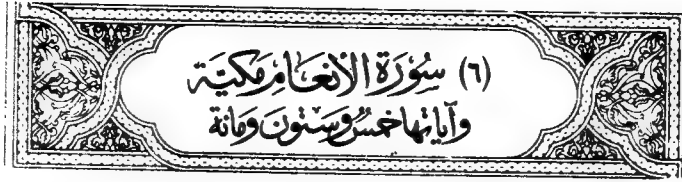 (٦) سُورَة الأنعَامِ مَكيَّة
وَآيَاتهَا خمسٌ وَسِتونَ وَمائة